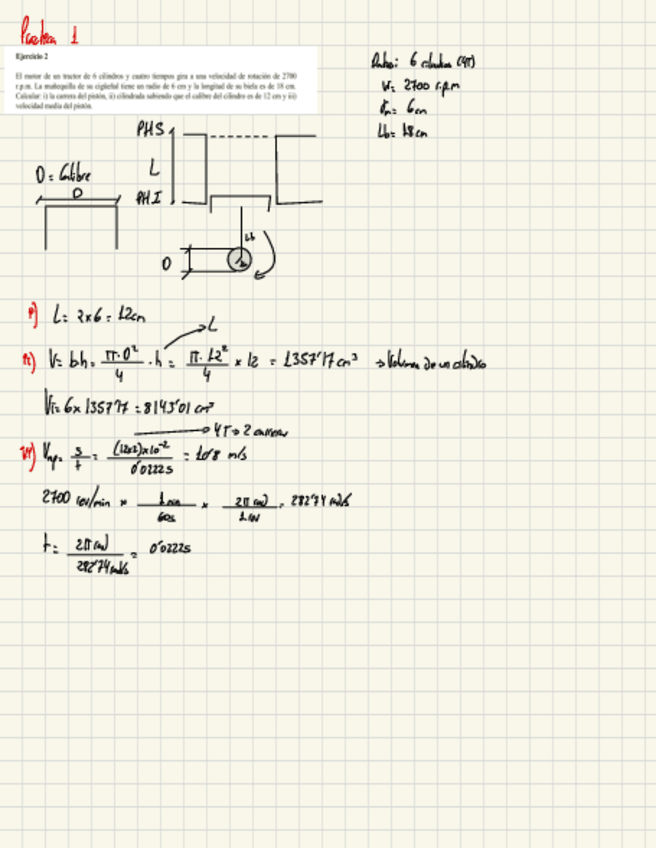 Practica 1
Ejercicio 2
El motor de un tractor de 6 cilindros y cuatro tiempos gira a una velocidad de rotación de 2700
r.p.m. La muñequilla de su cigüeñal tiene un radio de 6 cm y la longitud de su biela es de 18 cm.
Calcular: i) la carrera del pistón, ii) cilindrada sabiendo que el calibre del cilindro es de 12 cm y iii)
velocidad media del pistón.
Datos: 6 cilindros (4T)
W= 2700 r.p.m
rm= 6cm
Lb= 18cm
PMS
L
PMI
D = Calibre
D
Lb
D
i) L= 2x6 = 12cm
L
ii) V= b·h = π·D²/4 · h = π·12²/4 x 12 = 1357'17 cm³ → Volumen de un cilindro
VT= 6x1357'17 = 8143'01 cm³
4T → 2 carreras
iii) Vmp= s/t = (12x2)x10⁻²/0'0222s = 10'8 m/s
2700 rev/min x 1min/60s x 2π rad/1rev = 282'74 rad/s
t= 2π rad/282'74 rad/s = 0'0222s